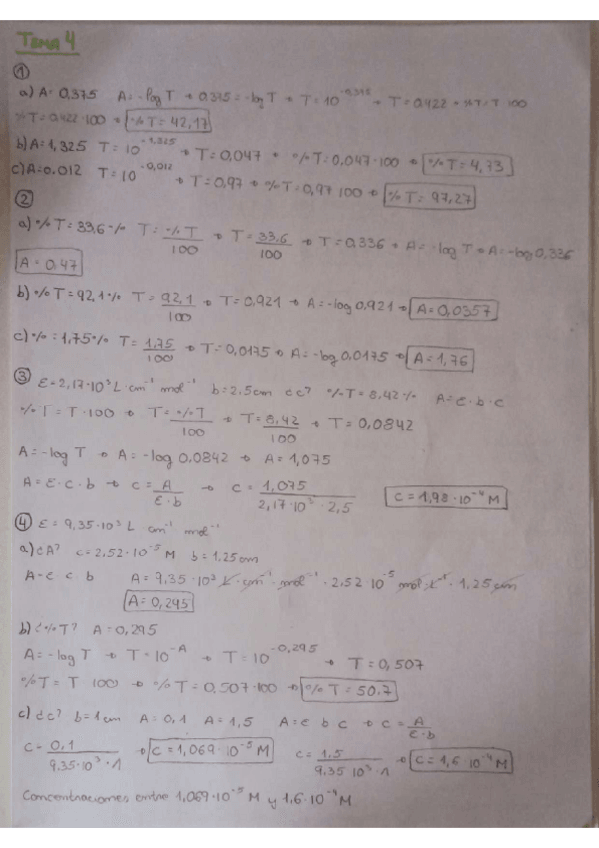 TEMA 4
①
a) A= 0,375 A= -log T → 0,375 = -log T → T= 10^-0,375 → T= 0,422 → %T= T·100
%T= 0,422·100 → %T= 42,17
b) A= 1,325 T= 10^-1,325 → T= 0,047 → %T= 0,047·100 → %T= 4,73
c) A= 0.012 T= 10^-0,012 → T= 0,97 → %T= 0,97·100 → %T= 97,27
②
a) %T= 33,6% T= %T/100 → T= 33,6/100 → T= 0,336 → A= -log T → A= -log 0,336
A= 0,47
b) %T= 92,1% T= 92,1/100 → T= 0,921 → A= -log 0,921 → A= 0,0357
c) %= 1,75% T= 1,75/100 → T= 0,0175 → A= -log 0,0175 → A= 1,76
③ ε= 2,17·10³ L·cm⁻¹ mol⁻¹ b= 2,5cm ¿c? %T= 8,42% A= ε·b·c
%T= T·100 → T= %T/100 → T= 8,42/100 → T= 0,0842
A= -log T → A= -log 0,0842 → A= 1,075
A= ε·c·b → c= A/ε·b → c= 1,075/2,17·10³·2,5 c= 1,98·10⁻⁴ M
④ ε= 9,35·10³ L cm⁻¹ mol⁻¹
a) ¿A? c= 2,52·10⁻⁵ M b= 1,25cm
A= ε c b A= 9,35·10³ L·cm⁻¹·mol⁻¹·2,52·10⁻⁵ mol·L⁻¹·1,25 cm
A= 0,295
b) ¿%T? A= 0,295
A= -log T → T= 10^-A → T= 10^-0,295 → T= 0,507
%T= T·100 → %T= 0,507·100 → %T= 50.7
c) ¿c? b= 1cm A= 0,1 A= 1,5 A= ε b c → c= A/ε·b
c= 0,1/9,35·10³·1 → c= 1,069·10⁻⁵ M c= 1,5/9,35·10³·1 → c= 1,6·10⁻⁴ M
Concentraciones entre 1,069·10⁻⁵ M y 1,6·10⁻⁴ M